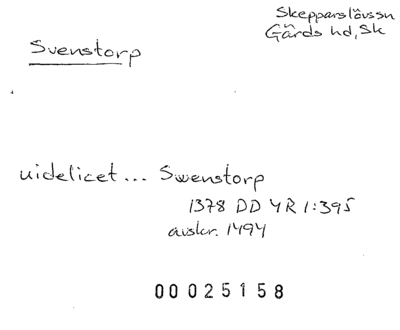 Skepparslövssn
Gärds hd, Sk
Svenstorp
uidelicet... Swenstorp
1378 DD 4R 1:395
avskr. 1494
00025158